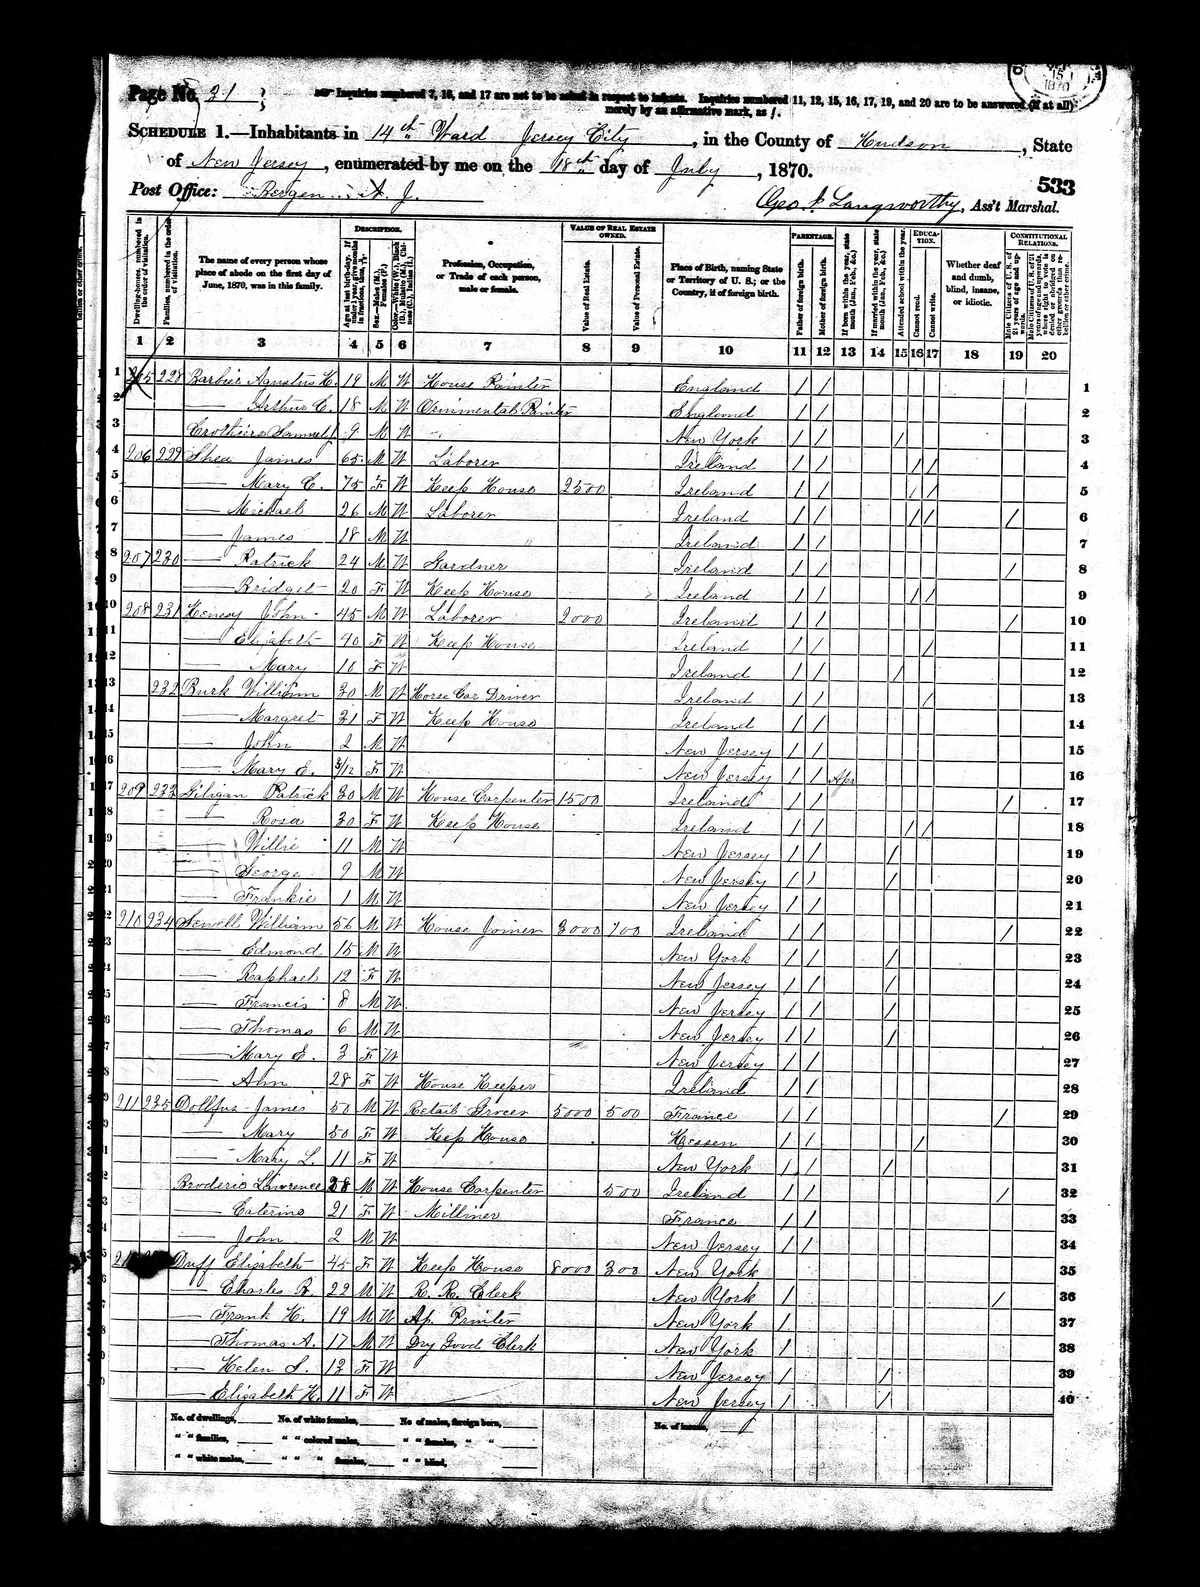 Page No. 31
Inquiries numbered 7, 16, and 17 are not to be asked in respect to infants. Inquiries numbered 11, 12, 15, 16, 17, 19, and 20 are to be answered (if at all)
merely by an affirmative mark, as /.
SCHEDULE 1.—Inhabitants in 14th Ward Jersey City, in the County of Hudson, State
of New Jersey, enumerated by me on the 18th day of July, 1870.
533
Post Office: Bergen N. J.
Geo. Langworthy, Ass't Marshal.
Dwelling-houses, numbered in the order of visitation.
Families, numbered in the order of visitation.
The name of every person whose place of abode on the first day of June, 1870, was in this family.
DESCRIPTION.
Age at last birth-day. If under 1 year, give months in fractions, thus, 3/12
Sex.—Males (M.), Females (F.)
Color.—White (W.), Black (B.), Mulatto (M.), Chinese (C.), Indian (I.)
Profession, Occupation, or Trade of each person, male or female.
VALUE OF REAL ESTATE OWNED.
Value of Real Estate.
Value of Personal Estate.
Place of Birth, naming State or Territory of U. S.; or the Country, if of foreign birth.
PARENTAGE.
Father of foreign birth.
Mother of foreign birth.
If born within the year, state month (Jan., Feb., &c.)
If married within the year, state month (Jan., Feb., &c.)
Attended school within the year.
EDUCATION.
Cannot read.
Cannot write.
Whether deaf and dumb, blind, insane, or idiotic.
CONSTITUTIONAL RELATIONS.
Male Citizens of U. S. of 21 years of age and upwards.
Male Citizens of U. S. of 21 years of age and upwards, whose right to vote is denied or abridged on other grounds than rebellion or other crime.
1 2 3 4 5 6 7 8 9 10 11 12 13 14 15 16 17 18 19 20
1 205 228 Barbier Agustus H. 19 M W House Painter England / / 1
2 —— Arthur C. 18 M W Ornimental Painter England / / 2
3 Crothiers Samuel 9 M W New York / / / 3
4 206 229 Shea James 65 M W Laborer Ireland / / / / 4
5 —— Mary C. 75 F W Keep House 2500 Ireland / / / / 5
6 —— Michael 26 M W Laborer Ireland / / / / / 6
7 —— James 18 M W " Ireland / / 7
8 207 230 —— Patrick 24 M W Gardner Ireland / / / 8
9 —— Bridget 20 F W Keep House Ireland / / / / 9
10 208 231 Kenesy John 45 M W Laborer 2000 Ireland / / / 10
11 —— Elizabeth 40 F W Keep House Ireland / / / 11
12 —— Mary 10 F W Ireland / / / 12
13 232 Burk William 30 M W Horse Car Driver Ireland / / / 13
14 —— Margret 31 F W Keep House Ireland / / 14
15 —— John 2 M W New Jersey / / 15
16 —— Mary E. 3/12 F W New Jersey / / Apr 16
17 209 233 Giligan Patrick 30 M W House Carpenter 1500 Ireland / / / 17
18 —— Rosa 30 F W Keep House Ireland / / / / 18
19 —— Willie 11 M W New Jersey / / / 19
20 —— George 9 M W New Jersey / / / 20
21 —— Frankie 1 M W New Jersey / / 21
22 210 234 Sewell William 56 M W House Joiner 3000 700 Ireland / / / 22
23 —— Edmond 15 M W New York / / / 23
24 —— Raphael 12 F W New Jersey / / / 24
25 —— Francis 8 M W New Jersey / / / 25
26 —— Thomas 6 M W New Jersey / / / 26
27 —— Mary E. 3 F W New Jersey / / 27
28 —— Ann 28 F W House Keeper Ireland / / 28
29 211 235 Dollfus James 50 M W Retail Grocer 5000 500 France / / / 29
30 —— Mary 50 F W Keep House Hessen / / / 30
31 —— Mary L. 11 F W New York / / / 31
32 Broderic Lawrence 28 M W House Carpenter 500 Ireland / / / 32
33 —— Caterine 21 F W Milliner France / / 33
34 —— John 2 M W New Jersey / / 34
35 Duff Elizabeth 45 F W Keep House 8000 300 New York 35
36 —— Charles R. 22 M W R. R. Clerk New York / / 36
37 —— Frank H. 19 M W Ap. Printer New York / 37
38 —— Thomas A. 17 M W Dry Good Clerk New York / 38
39 —— Helen S. 13 F W New Jersey / / 39
40 —— Elizabeth H. 11 F W New Jersey / / 40
No. of dwellings, No. of white females, No. of males, foreign born, No. of insane,
" " families, " " colored males, " " females, " "
" " white males, " " " females, " " blind,